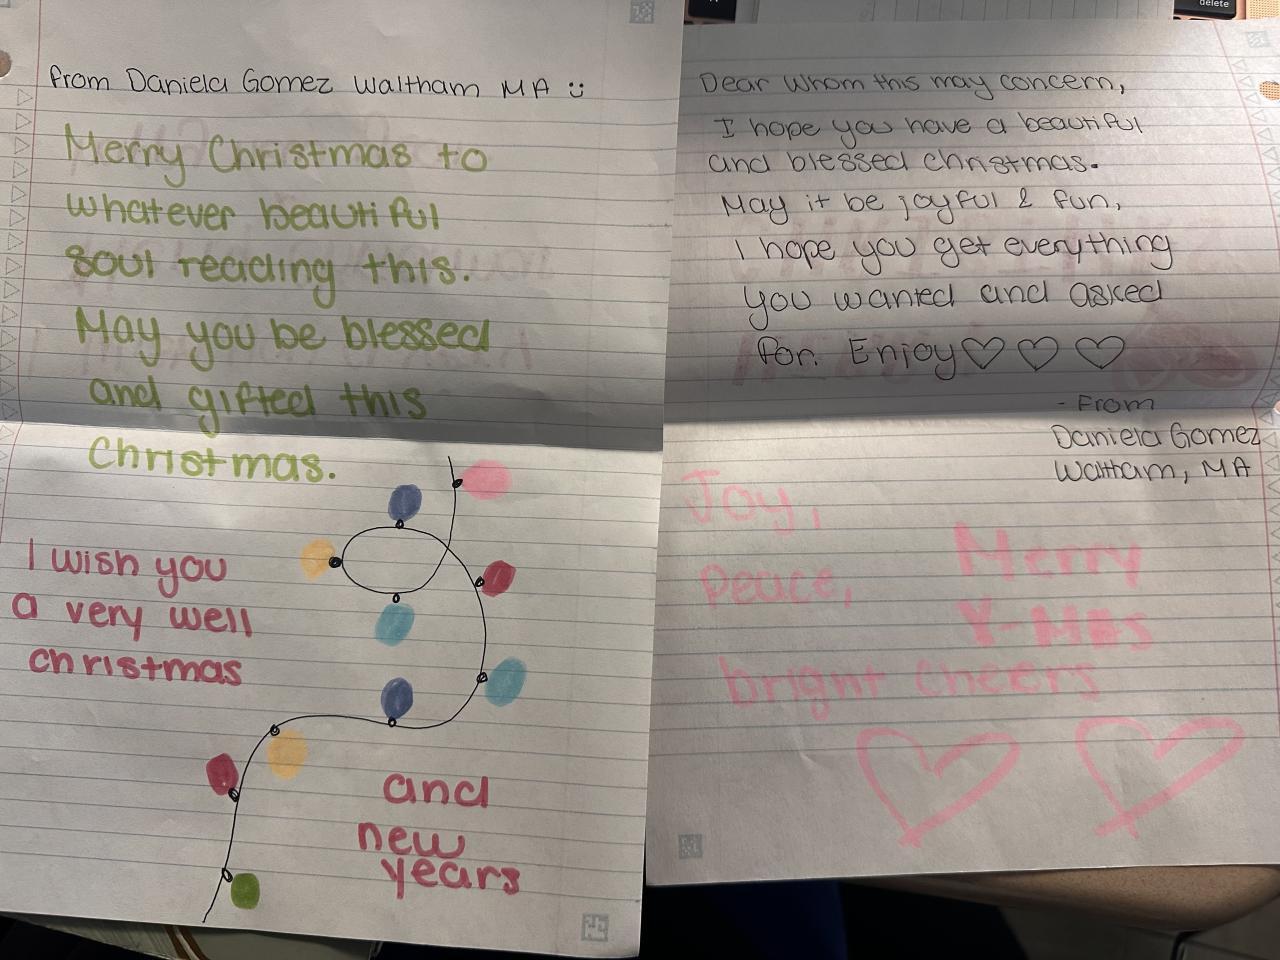 from Daniela Gomez Waltham MA
Merry Christmas to
whatever beautiful
soul reading this.
May you be blessed
and gifted this
Christmas.
I wish you
a very well
christmas
and
new
years
delete
Dear Whom this may concern,
I hope you have a beautiful
and blessed christmas.
May it be joyful & fun,
I hope you get everything
you wanted and asked
for. Enjoy♡ ♡ ♡
- From
Daniela Gomez
Waltham, MA
Joy,
Peace,
bright cheers
Merry
X-MAS